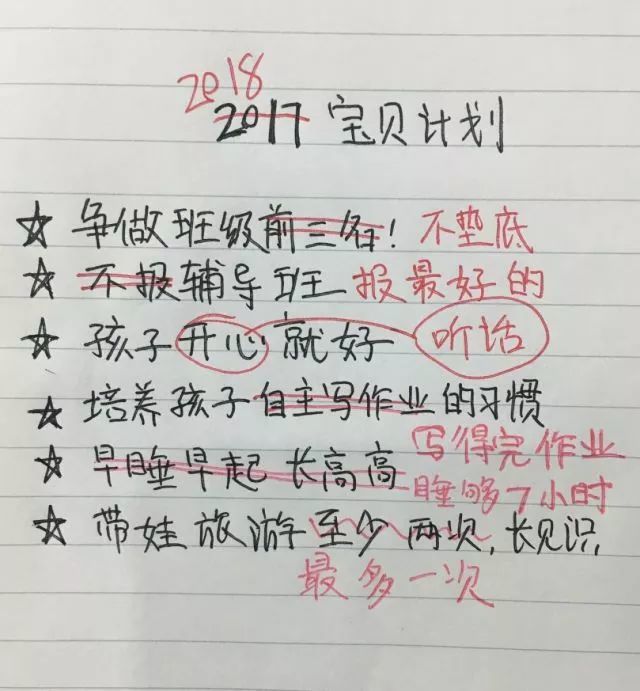 2018
2017 宝贝计划
☆ 争做班级前三名! 不垫底
☆ 不报辅导班 报最好的
☆ 孩子开心就好 听话
☆ 培养孩子自主写作业的习惯
写得完作业
☆ 早睡早起 长高高
睡够7小时
☆ 带娃旅游至少两次,长见识,
最多一次